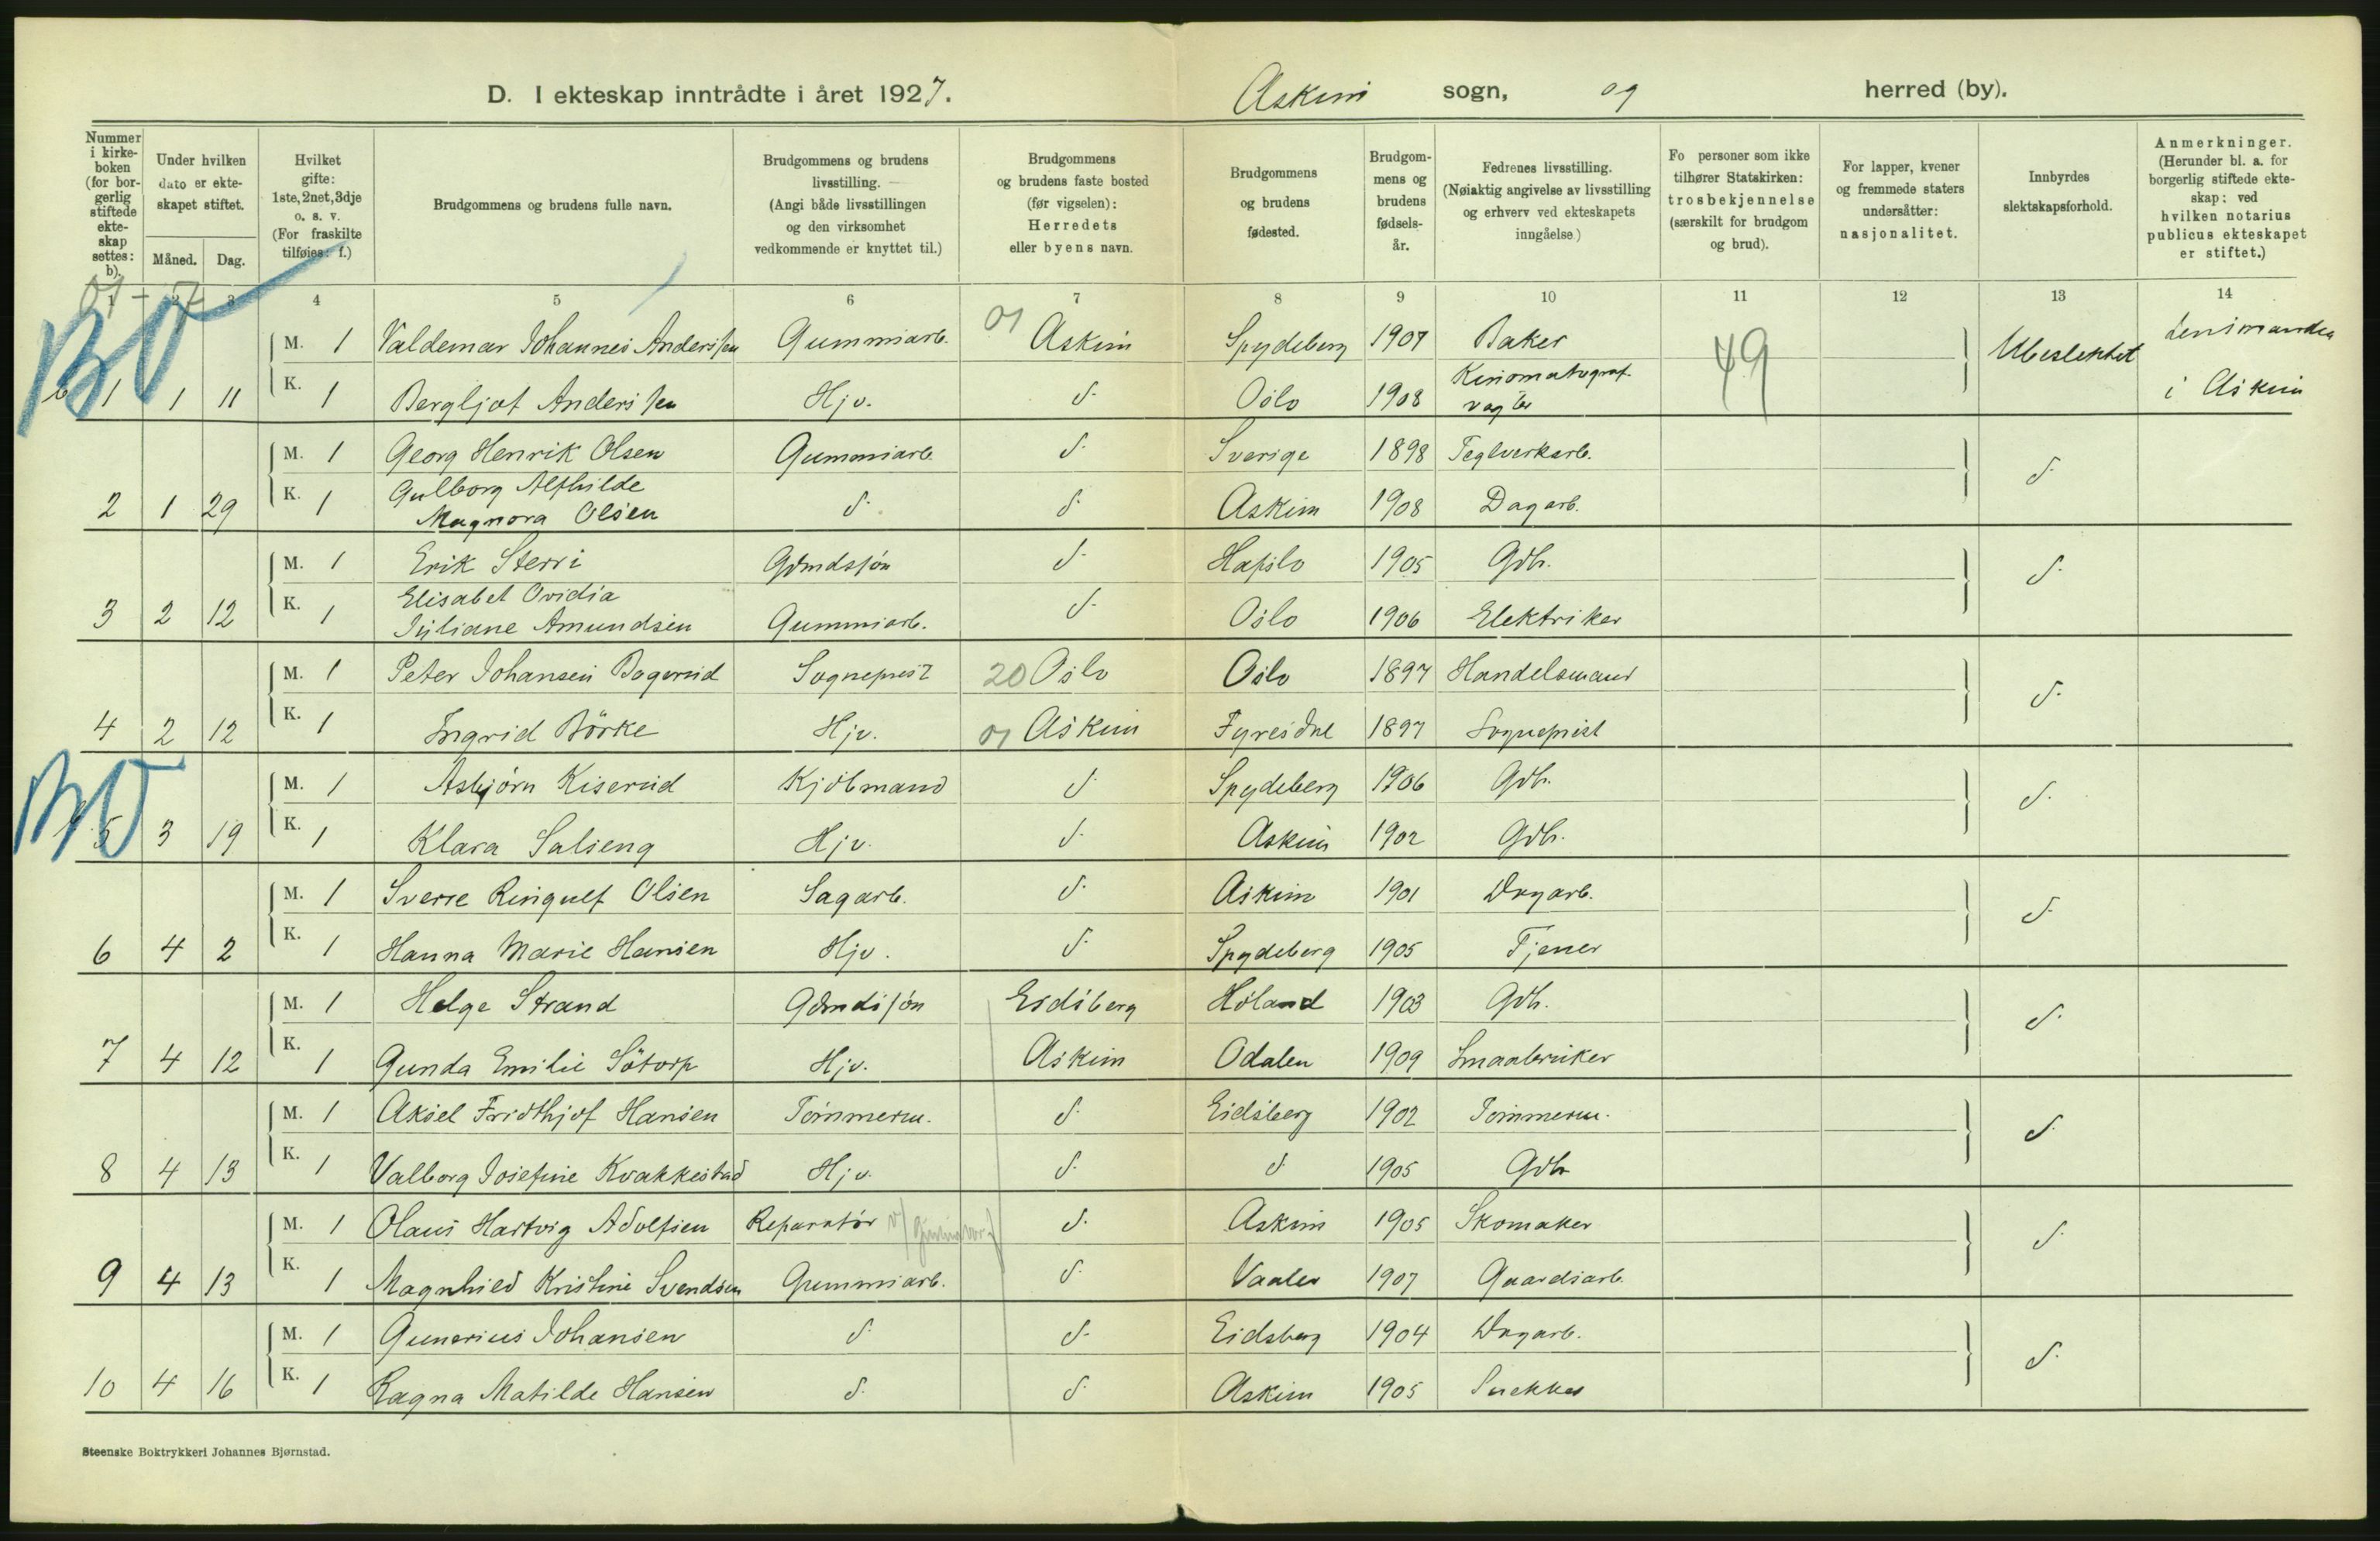 D. I ekteskap inntrådte i året 1927. Askim sogn, og herred (by).
Nummer i kirkeboken (for borgerlig stiftede ekteskap settes: b).
Under hvilken dato er ekteskapet stiftet.
Måned. Dag.
Hvilket gifte: 1ste, 2net, 3dje o. s. v. (For fraskilte tilføies: f.)
Brudgommens og brudens fulle navn.
Brudgommens og brudens livsstilling. (Angi både livsstillingen og den virksomhet vedkommende er knyttet til.)
Brudgommens og brudens faste bosted (før vigselen): Herredets eller byens navn.
Brudgommens og brudens fødested.
Brudgommens og brudens fødselsår.
Fedrenes livsstilling. (Nøiaktig angivelse av livsstilling og erhverv ved ekteskapets inngåelse.)
Fo personer som ikke tilhører Statskirken: trosbekjennelse (særskilt for brudgom og brud).
For lapper, kvener og fremmede staters undersåtter: nasjonalitet.
Innbyrdes slektskapsforhold.
Anmerkninger. (Herunder bl. a. for borgerlig stiftede ekteskap: ved hvilken notarius publicus ekteskapet er stiftet.)
1 2 3 4 5 6 7 8 9 10 11 12 13 14
BO
M. 1 Valdemar Johannes Anderssen Gummiarb. 01 Askim Spydeberg 1907 Baker 49 Ubeslektet Lensmanden
b 1 1 11 K. 1 Bergljot Anderssen Hjv. d. Oslo 1908 Kinomatograf vagter i Askim
M. 1 Georg Henrik Olsen Gummiarb. d. Sverige 1898 Teglverksarb. d.
2 1 29 K. 1 Gulborg Alfhilde
Magnora Olsen d. d. Askim 1908 Dagarb.
M. 1 Erik Sterri Gdmdssøn d. Hafslo 1905 Gdb. d.
K. 1 Elisabet Ovidia
3 2 12 Juliane Amundsen Gummiarb. d. Oslo 1906 Elektriker
M. 1 Peter Johansen Bogerud Sogneprest 20 Oslo Oslo 1897 Handelsmand d.
4 2 12 K. 1 Ingrid Börke Hjv. 01 Askim Fyresdal 1897 Sogneprist
BO
M. 1 Asbjørn Kiserud Kjöbmand d. Spydeberg 1906 Gdb. d.
5 3 19 K. 1 Klara Salseng Hjv. d. Askim 1902 Gdb.
M. 1 Sverre Ringulf Olsen Sagarb. d. Askim 1901 Dagarb. d.
6 4 2 K. 1 Hanna Marie Hansen Hjv. d. Spydeberg 1905 Tjener
M. 1 Helge Strand Gdmdssøn Eidsberg Høland 1903 Gdb. d.
7 4 12 K. 1 Gunda Emilie Sötorp Hjv. Askim Odalen 1909 Smaabruker
M. 1 Aksel Fridthjof Hansen Tømmerm. d. Eidsberg 1902 Tømmerm. d.
8 4 13 K. 1 Valborg Josefine Kvakkestad Hjv. d. d. 1905 Gdb
M. 1 Olaus Hartvig Adolfsen Reparatør d. Askim 1905 Skomaker d.
9 4 13 K. 1 Magnhild Kristine Svendsen Gummiarb. d. Vaaler 1907 Gaardsarb.
M. 1 Gunerius Johansen d. d. Eidsberg 1904 Dagarb. d.
10 4 16 K. 1 Ragna Matilde Hansen d. d. Askim 1905 Snekker
Steenske Boktrykkeri Johannes Bjørnstad.